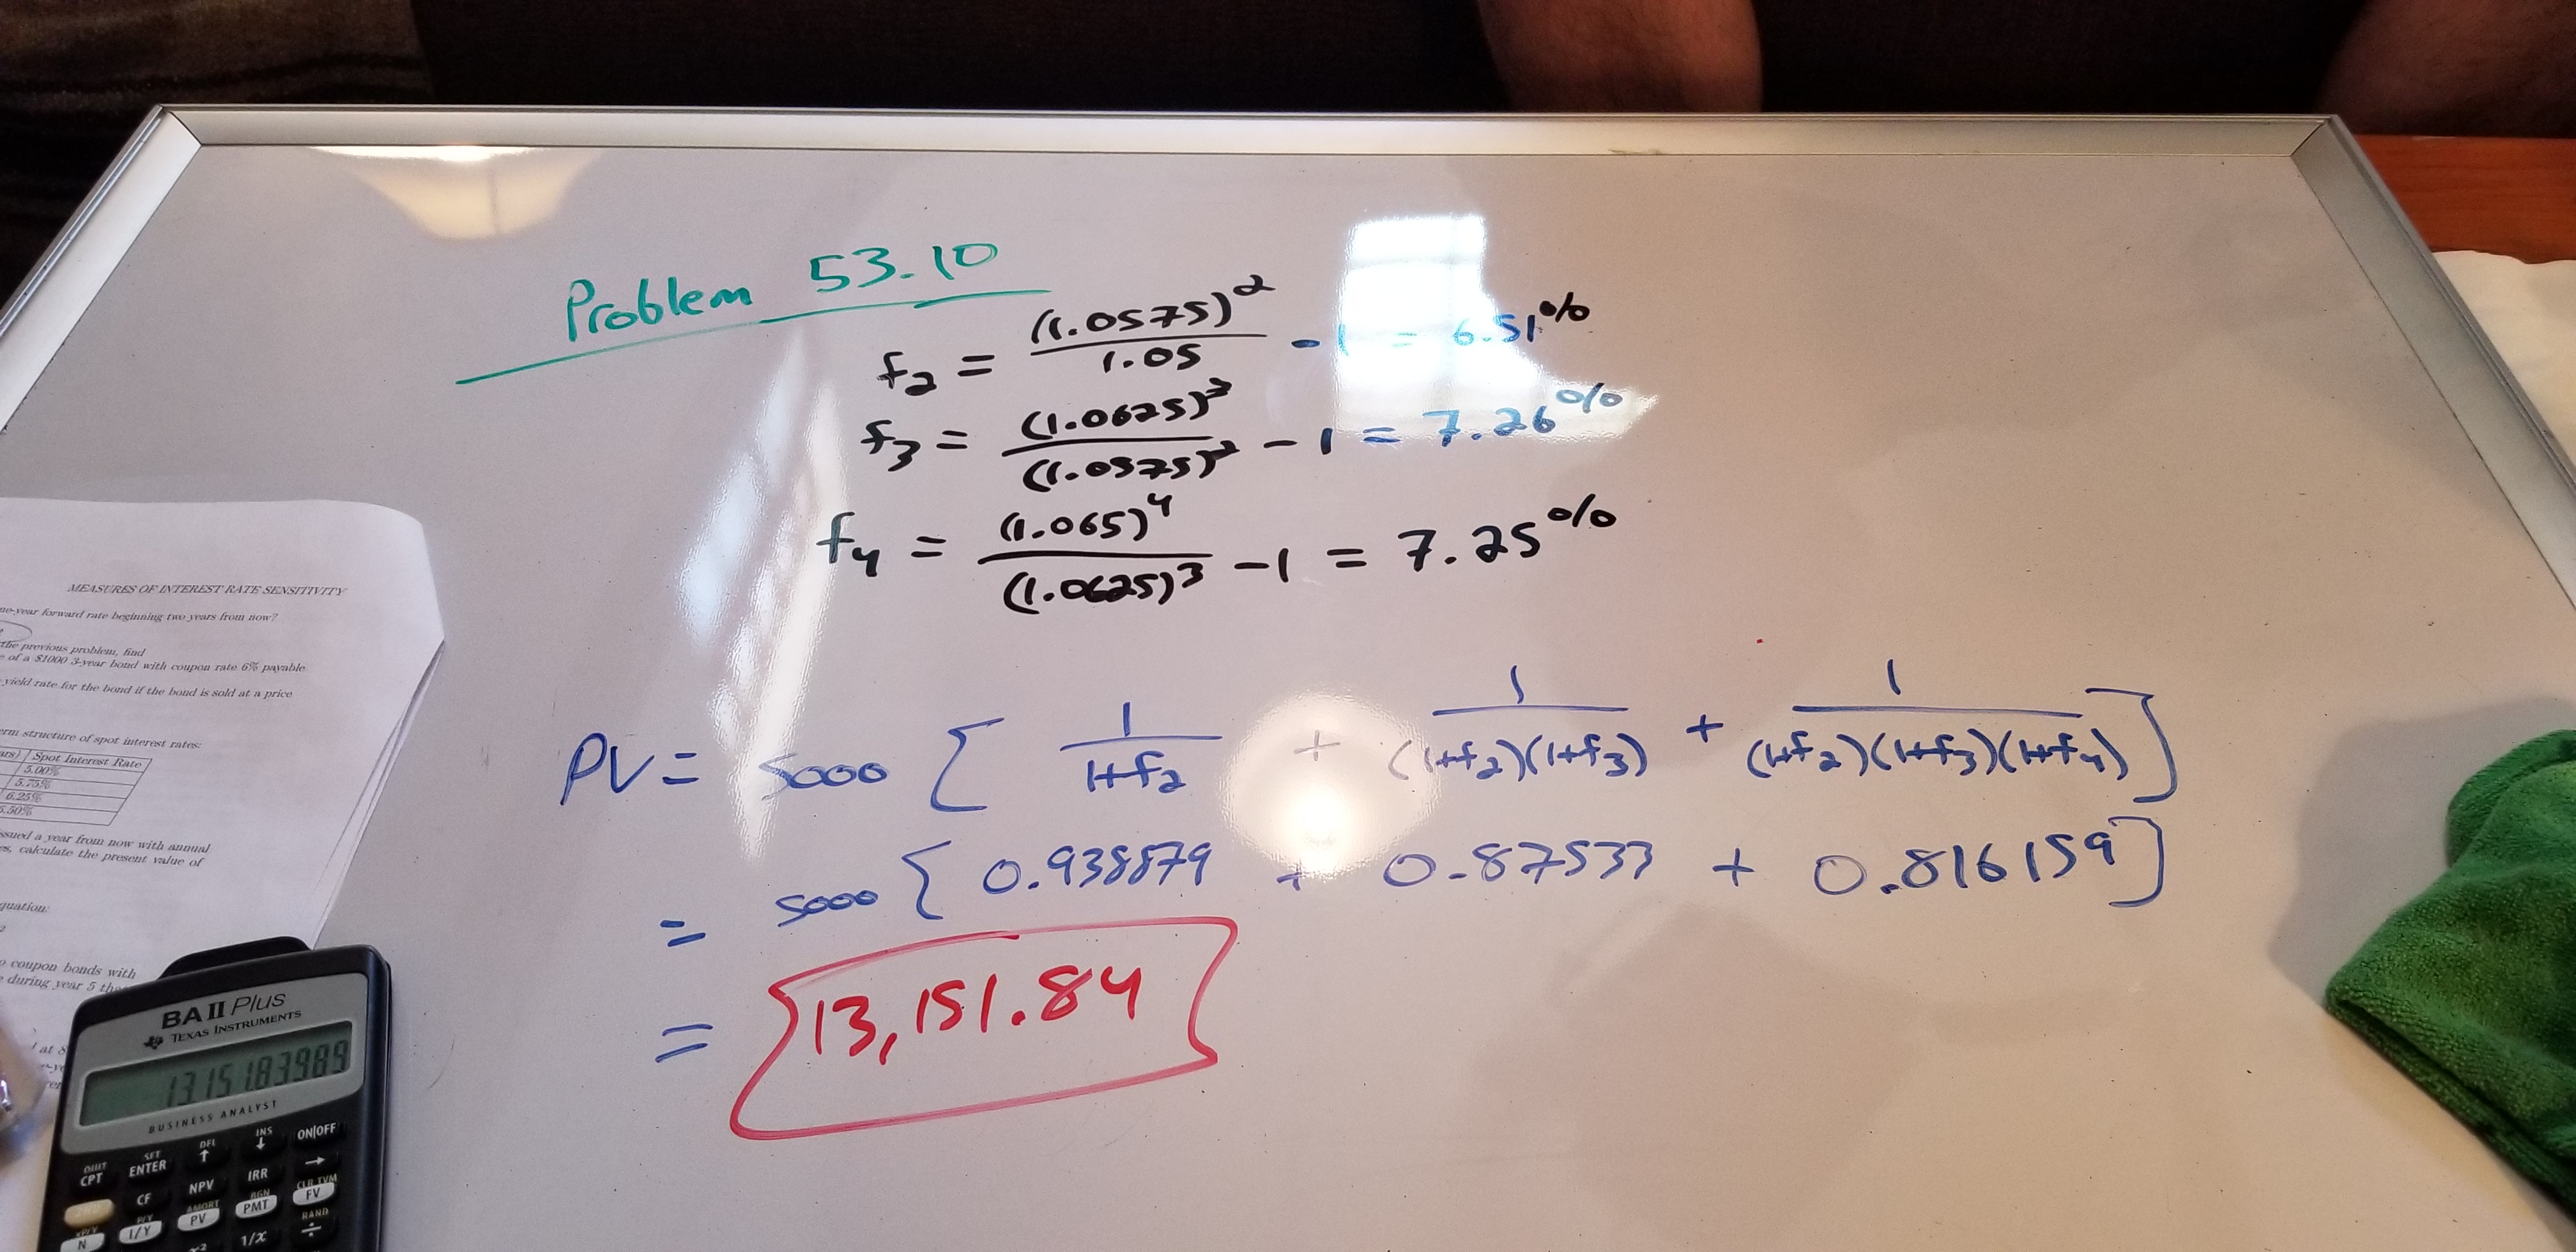 Problem 53.10
f₂ = (1.0575)² / 1.05 - 1 = 6.51%
f₃ = (1.0625)³ / (1.0575)² - 1 = 7.26%
f₄ = (1.065)⁴ / (1.0625)³ - 1 = 7.25%
PV = 5000 [ 1 / 1+f₂ + 1 / (1+f₂)(1+f₃) + 1 / (1+f₂)(1+f₃)(1+f₄) ]
= 5000 [ 0.938879 + 0.87533 + 0.816159 ]
= 13,151.84
MEASURES OF INTEREST RATE SENSITIVITY
forward rate beginning two years from now?
the previous problem, find
of a $1000 3-year bond with coupon rate 6% payable
yield rate for the bond if the bond is sold at a price
structure of spot interest rates:
Spot Interest Rate
5.00%
5.75%
6.25%
6.50%
a year from now with annual
calculate the present value of
coupon bonds with
during year 5
at
BA II Plus
TEXAS INSTRUMENTS
13,151.83989
BUSINESS ANALYST
QUIT SET DEL INS
CPT ENTER ↑ ↓ ON|OFF
CF NPV IRR →
2ND
xP/Y P/Y AMORT BGN CLR TVM
N I/Y PV PMT FV
RAND
x² 1/x ÷